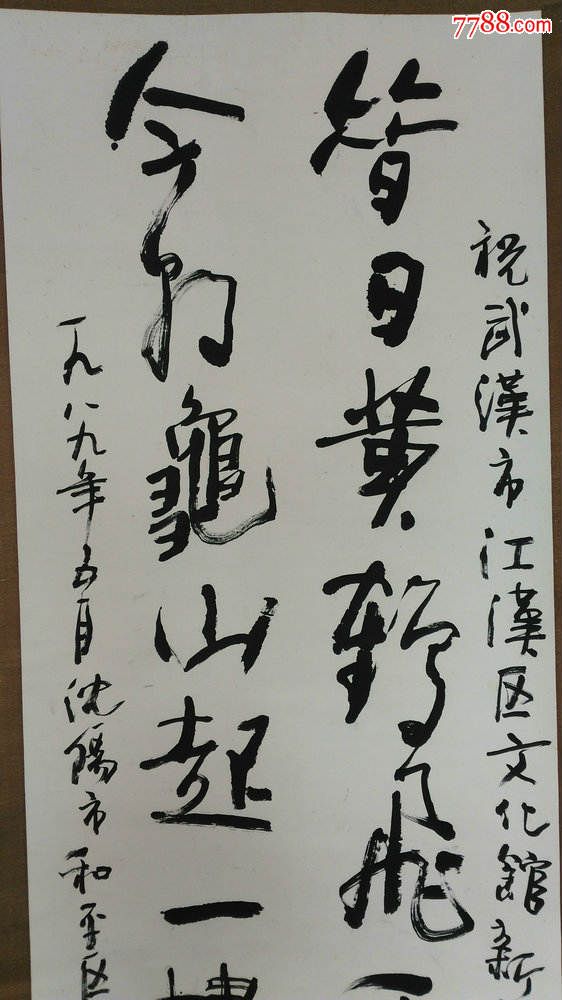 7788.com
祝武漢市江漢区文化館新
昔日黄鹤飛
今朝龜山起一
一九八九年五月沈陽市和平区